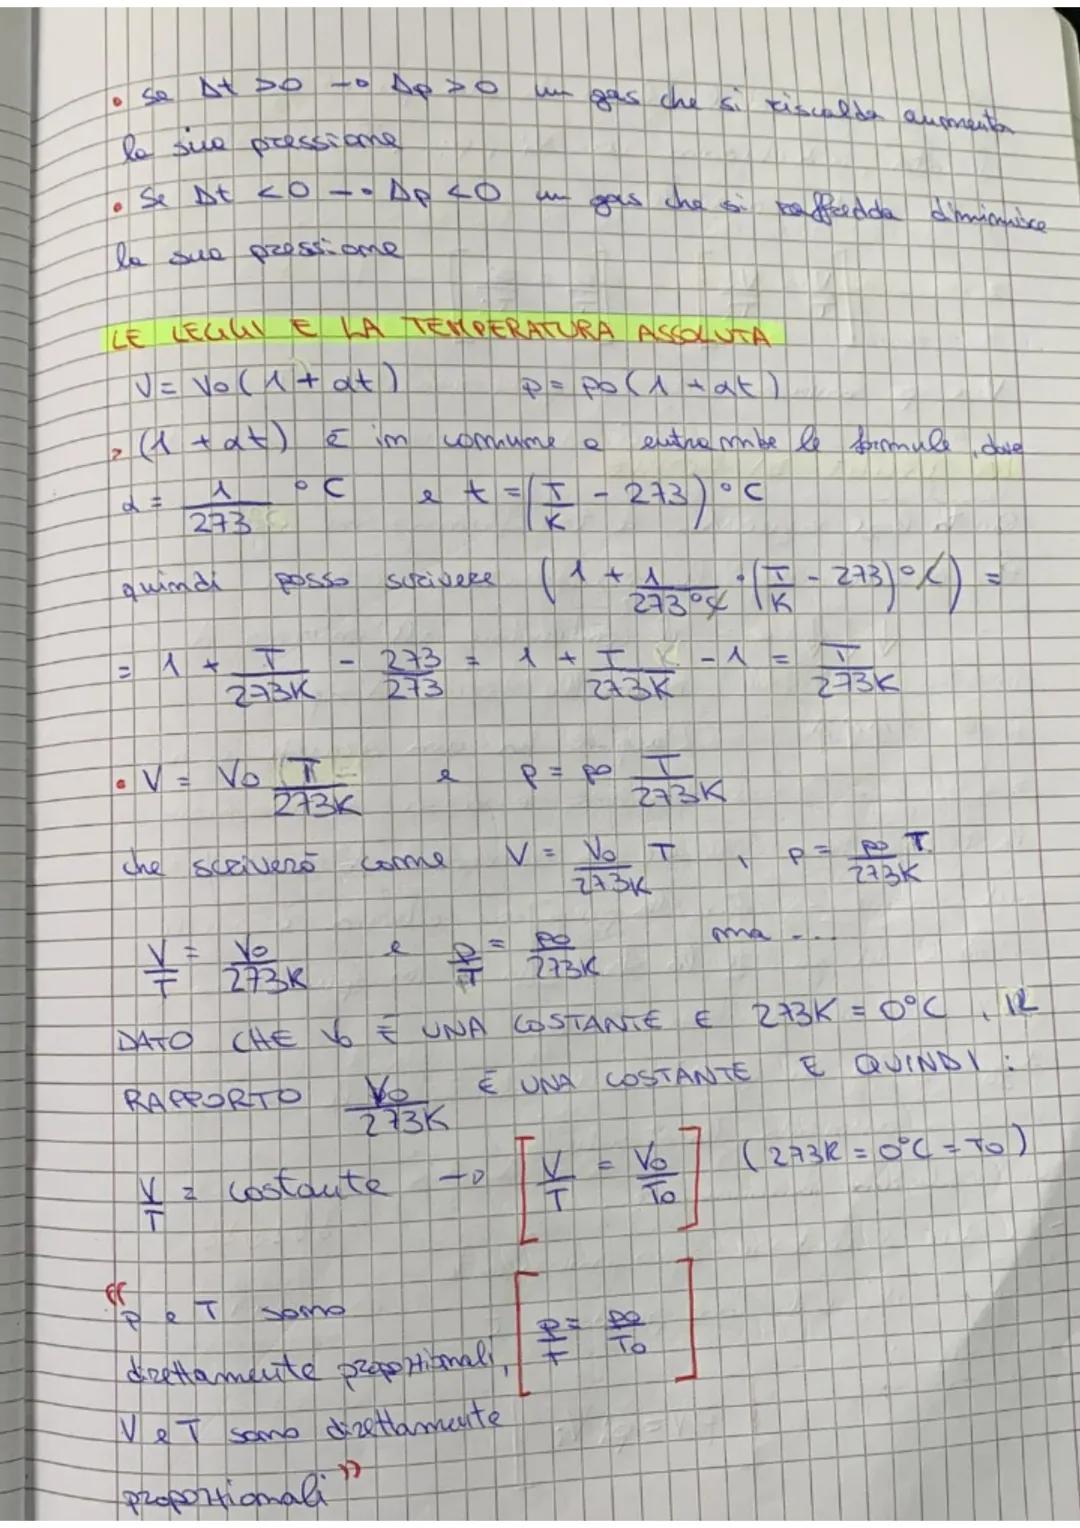 • Se Δt >0 → Δp >0 un gas che si riscalda aumenta
la sua pressione
• Se Δt <0 → Δp <0 un gas che si raffredda diminuisce
la sua pressione
LE LEGGI E LA TEMPERATURA ASSOLUTA
V = V₀(1 + αt)    p = p₀(1 + αt)
> (1 + αt) È in comune a entrambe le formule, dove
α = 1/273 °C e t = (T/K - 273) °C
quindi posso scrivere (1 + 1/273°C · (T/K - 273)°C) =
= 1 + T/273K - 273/273 = 1 + T/273K - 1 = T/273K
• V = V₀ T/273K e p = p₀ T/273K
che scriverò come V = V₀/273K T , p = p₀/273K T
V/T = V₀/273K e p/T = p₀/273K ma ...
DATO CHE V₀ È UNA COSTANTE E 273K = 0°C, IL
RAPPORTO V₀/273K È UNA COSTANTE E QUINDI:
V/T = costante → [V/T = V₀/T₀] (273K = 0°C = T₀)
"p e T sono
direttamente proporzionali, [p/T = p₀/T₀]
V e T sono direttamente
proporzionali"